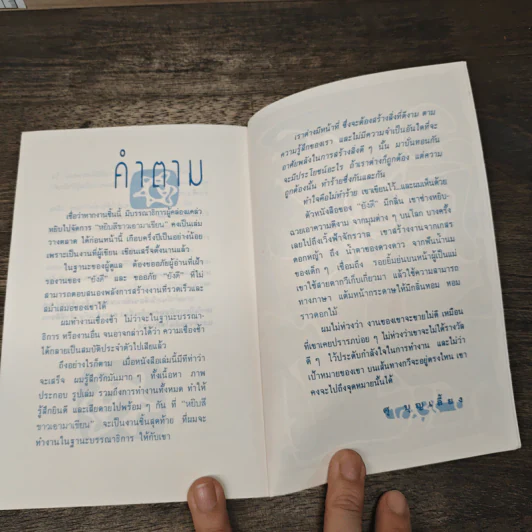 คำตาม
เชื่อว่าหากงานชิ้นนี้ มีบรรณาธิการผู้คล่องแคล่ว
หยิบไปจัดการ "หยิบสีขาวเอามาเขียน" คงเป็นเล่ม
วางตลาด ได้ก่อนหน้านี้ เกือบครึ่งปีเป็นอย่างน้อย
เพราะเป็นงานที่ผู้เขียน เขียนเสร็จตั้งนานแล้ว
ในฐานะของผู้ดูแล ต้องขออภัยผู้อ่านที่เฝ้า
รองานของ "ยังดี" และ ขออภัย "ยังดี" ที่ไม่
สามารถตอบสนองพลังการสร้างงานที่รวดเร็วและ
สม่ำเสมอของเขาได้
ผมทำงานเชื่องช้า ไม่ว่าจะในฐานะบรรณา-
ธิการ หรืองานอื่น จนอาจกล่าวได้ว่า ความเชื่องช้า
ได้กลายเป็นสมบัติประจำตัวไปเสียแล้ว
ถึงอย่างไรก็ตาม เมื่อหนังสือเล่มนี้มีทีท่าว่า
จะเสร็จ ผมรู้สึกรักมันมาก ๆ ทั้งเนื้อหา ภาพ
ประกอบ รูปเล่ม รวมถึงการทำงานทั้งหมด ทำให้
รู้สึกยินดี และเสียดายไปพร้อม ๆ กัน ที่ "หยิบสี
ขาวเอามาเขียน" จะเป็นงานชิ้นสุดท้าย ที่ผมจะ
ทำงานในฐานะบรรณาธิการ ให้กับเขา
เราต่างมีหน้าที่ ซึ่งจะต้องสร้างสิ่งที่ดีงาม ตาม
ความรู้สึกของเรา และไม่มีความจำเป็นอันใดที่จะ
อาศัยพลังในการสร้างสิ่งดี ๆ นั้น มาบั่นทอนกัน
จะมีประโยชน์อะไร ถ้าเราต่างก็ถูกต้อง แต่ความ
ถูกต้องนั้น ทำร้ายซึ่งกันและกัน
ทำใจคือไม่ทำร้าย เขาเขียนไว้..และผมเห็นด้วย
ตัวหนังสือของ "ยังดี" มีกลิ่น เขาช่างหยิบ-
ฉวยเอาความดีงาม จากมุมต่าง ๆ บนโลก บางครั้ง
เลยไปถึงเวิ้งฟ้าจักรวาล เขาสร้างงานจากเกสร
ดอกหญ้า ถึง น้ำตาของดวงดาว จากพื้นน้ำนม
ของเด็ก ๆ เชื่อมถึง รอยยิ้มย่นบนหน้าผู้เป็นแม่
เขาใช้สายตากวีเก็บเกี่ยวมา แล้วใช้ความสามารถ
ทางภาษา แต้มหน้ากระดาษให้มีกลิ่นหอม หอม
ราวดอกไม้
ผมไม่ห่วงว่า งานของเขาจะขายไม่ดี เหมือน
ที่เขาเคยปรารภบ่อย ๆ ไม่ห่วงว่าเขาจะไม่ได้รางวัล
ดี ๆ ไว้ประดับกำลังใจในการทำงาน และไม่ว่า
เป้าหมายของเขา บนเส้นทางกวีจะอยู่ตรงไหน เขา
คงจะไปถึงจุดหมายนั้นได้